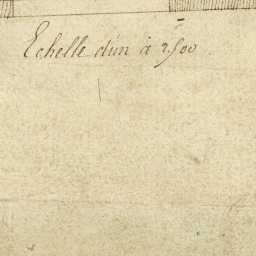 Echelle d'un à 2500